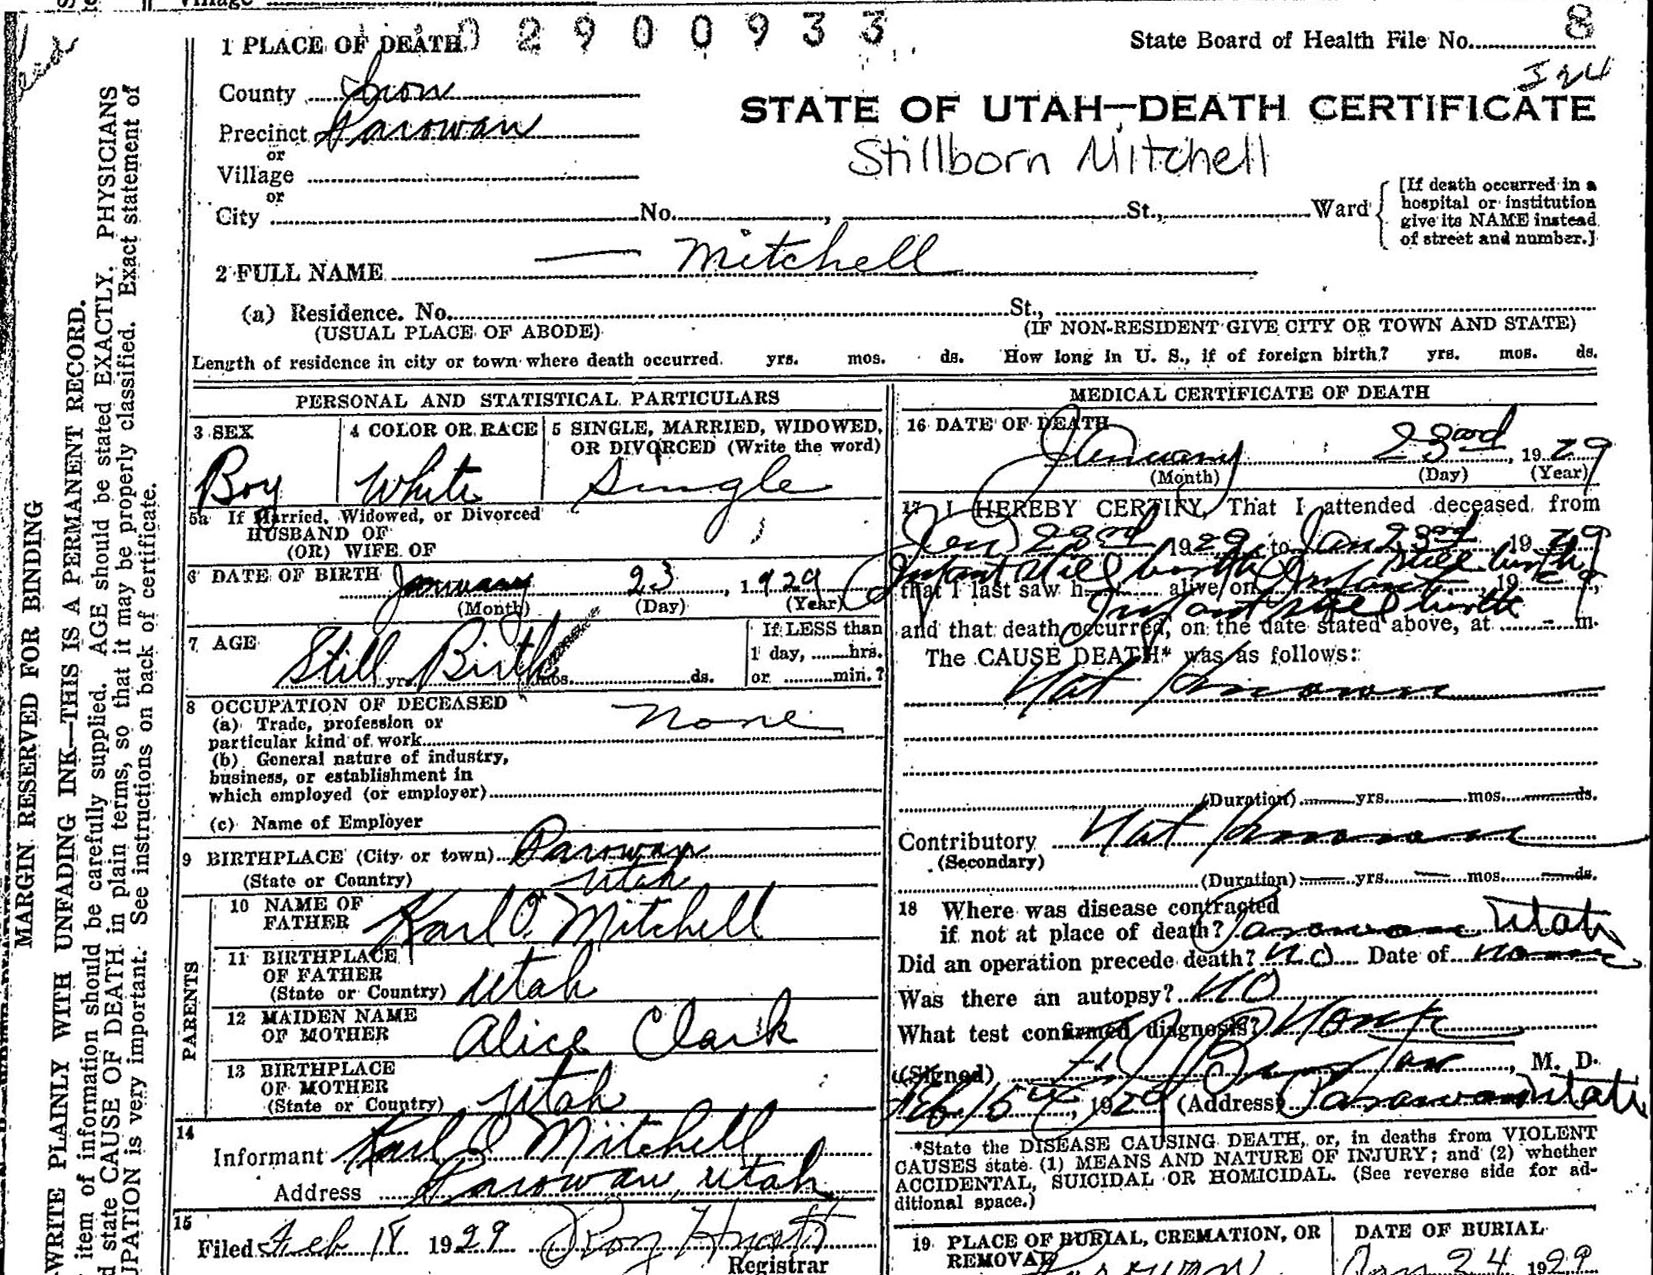 Village
0 2 9 0 0 9 3 3
8
1 PLACE OF DEATH
State Board of Health File No.
I 24
County Iron
STATE OF UTAH—DEATH CERTIFICATE
Precinct Parowan
or
Stillborn Mitchell
Village
or
City No. , St., Ward
[If death occurred in a
hospital or institution
give its NAME instead
of street and number.]
2 FULL NAME — Mitchell
(a) Residence. No. St.,
(USUAL PLACE OF ABODE) (IF NON-RESIDENT GIVE CITY OR TOWN AND STATE)
Length of residence in city or town where death occurred. yrs. mos. ds. How long in U. S., if of foreign birth? yrs. mos. ds.
PERSONAL AND STATISTICAL PARTICULARS
3 SEX 4 COLOR OR RACE 5 SINGLE, MARRIED, WIDOWED,
OR DIVORCED (Write the word)
Boy White Single
5a If Married, Widowed, or Divorced
HUSBAND OF
(OR) WIFE OF
6 DATE OF BIRTH January 23, 1929
(Month) (Day) (Year)
7 AGE Still Birth
yrs. mos. ds.
If LESS than
1 day, hrs.
or min.?
8 OCCUPATION OF DECEASED
(a) Trade, profession or
particular kind of work None
(b) General nature of industry,
business, or establishment in
which employed (or employer)
(c) Name of Employer
9 BIRTHPLACE (City or town) Parowan
(State or Country) Utah
PARENTS
10 NAME OF
FATHER Karl O. Mitchell
11 BIRTHPLACE
OF FATHER
(State or Country) Utah
12 MAIDEN NAME
OF MOTHER Alice Clark
13 BIRTHPLACE
OF MOTHER
(State or Country) Utah
14
Informant Karl O Mitchell
Address Parowan, Utah
15
Filed Feb 18 1929
Registrar
MEDICAL CERTIFICATE OF DEATH
16 DATE OF DEATH
January 23rd, 1929
(Month) (Day) (Year)
17 I HEREBY CERTIFY, That I attended deceased from
Jan 23rd 1929 to Jan 23rd 1929
Infant still birth Infant still birth
that I last saw h alive on 19
Infant still birth
and that death occurred, on the date stated above, at m.
The CAUSE DEATH* was as follows:
Not Known
(Duration) yrs. mos. ds.
Contributory Not Known
(Secondary)
(Duration) yrs. mos. ds.
18 Where was disease contracted
if not at place of death? Parowan Utah
Did an operation precede death? No Date of none
Was there an autopsy? NO
What test confirmed diagnosis? None
(Signed) , M. D.
Feb 15th, 1929 (Address) Parowan Utah
*State the DISEASE CAUSING DEATH, or, in deaths from VIOLENT
CAUSES state (1) MEANS AND NATURE OF INJURY; and (2) whether
ACCIDENTAL, SUICIDAL OR HOMICIDAL. (See reverse side for ad-
ditional space.)
19 PLACE OF BURIAL, CREMATION, OR
REMOVAL Parowan
DATE OF BURIAL
Jan 24 1929
MARGIN RESERVED FOR BINDING
WRITE PLAINLY WITH UNFADING INK—THIS IS A PERMANENT RECORD.
item of information should be carefully supplied. AGE should be stated EXACTLY. PHYSICIANS
state CAUSE OF DEATH in plain terms, so that it may be properly classified. Exact statement of
UPATION is very important. See instructions on back of certificate.